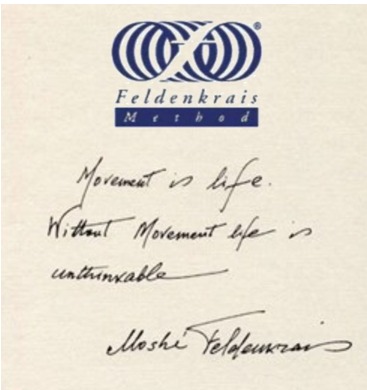 Feldenkrais®
Method
Movement is life.
Without Movement life is
unthinkable
Moshé Feldenkrais